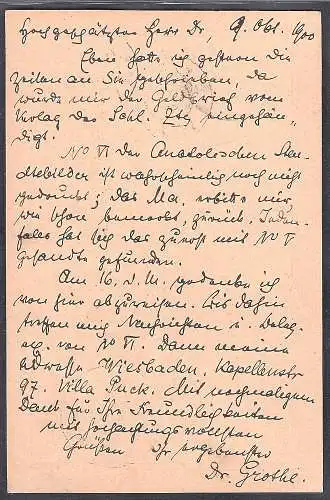 Hochgeschätzter Herr Dr, 9. Okt. 1900
Eben hatte ich gestern die
Zeilen an Sie geschrieben, da
wurde mir der Geldbrief vom
Verlag der Schl. Ztg eingehän-
digt.
No VI der Anatolischen Städ-
tebilder ist wahrscheinlich noch nicht
gedruckt; das Ma. erbitte mir,
wie schon bemerkt, zurück. Jeden-
falls hat sich das zuerst mit No V
gesandte gefunden.
Am 16. d. M. gedenke ich
von hier abzureisen. Bis dahin
treffen mich Nachrichten u. Beleg-
ex. von No VI. Dann meine
Adresse Wiesbaden. Kapellenstr
97. Villa Puck. Mit nochmaligem
Dank für Ihre Freundlichkeiten
mit hochachtungsvollsten
Grüßen Ihr ergebenster
Dr. Grothe.